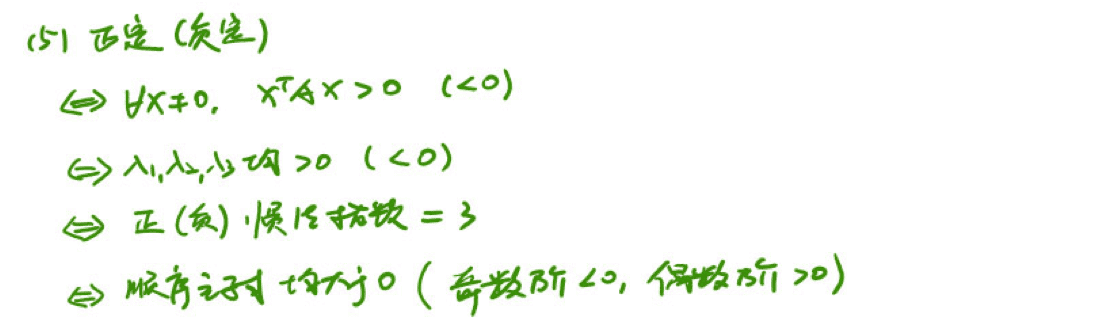 (5) 正定(负定)
⇔ ∀x≠0, xᵀAx>0 (<0)
⇔ λ₁,λ₂,λ₃均>0 (<0)
⇔ 正(负)惯性指数=3
⇔ 顺序主子式均大于0(奇数阶<0, 偶数阶>0)